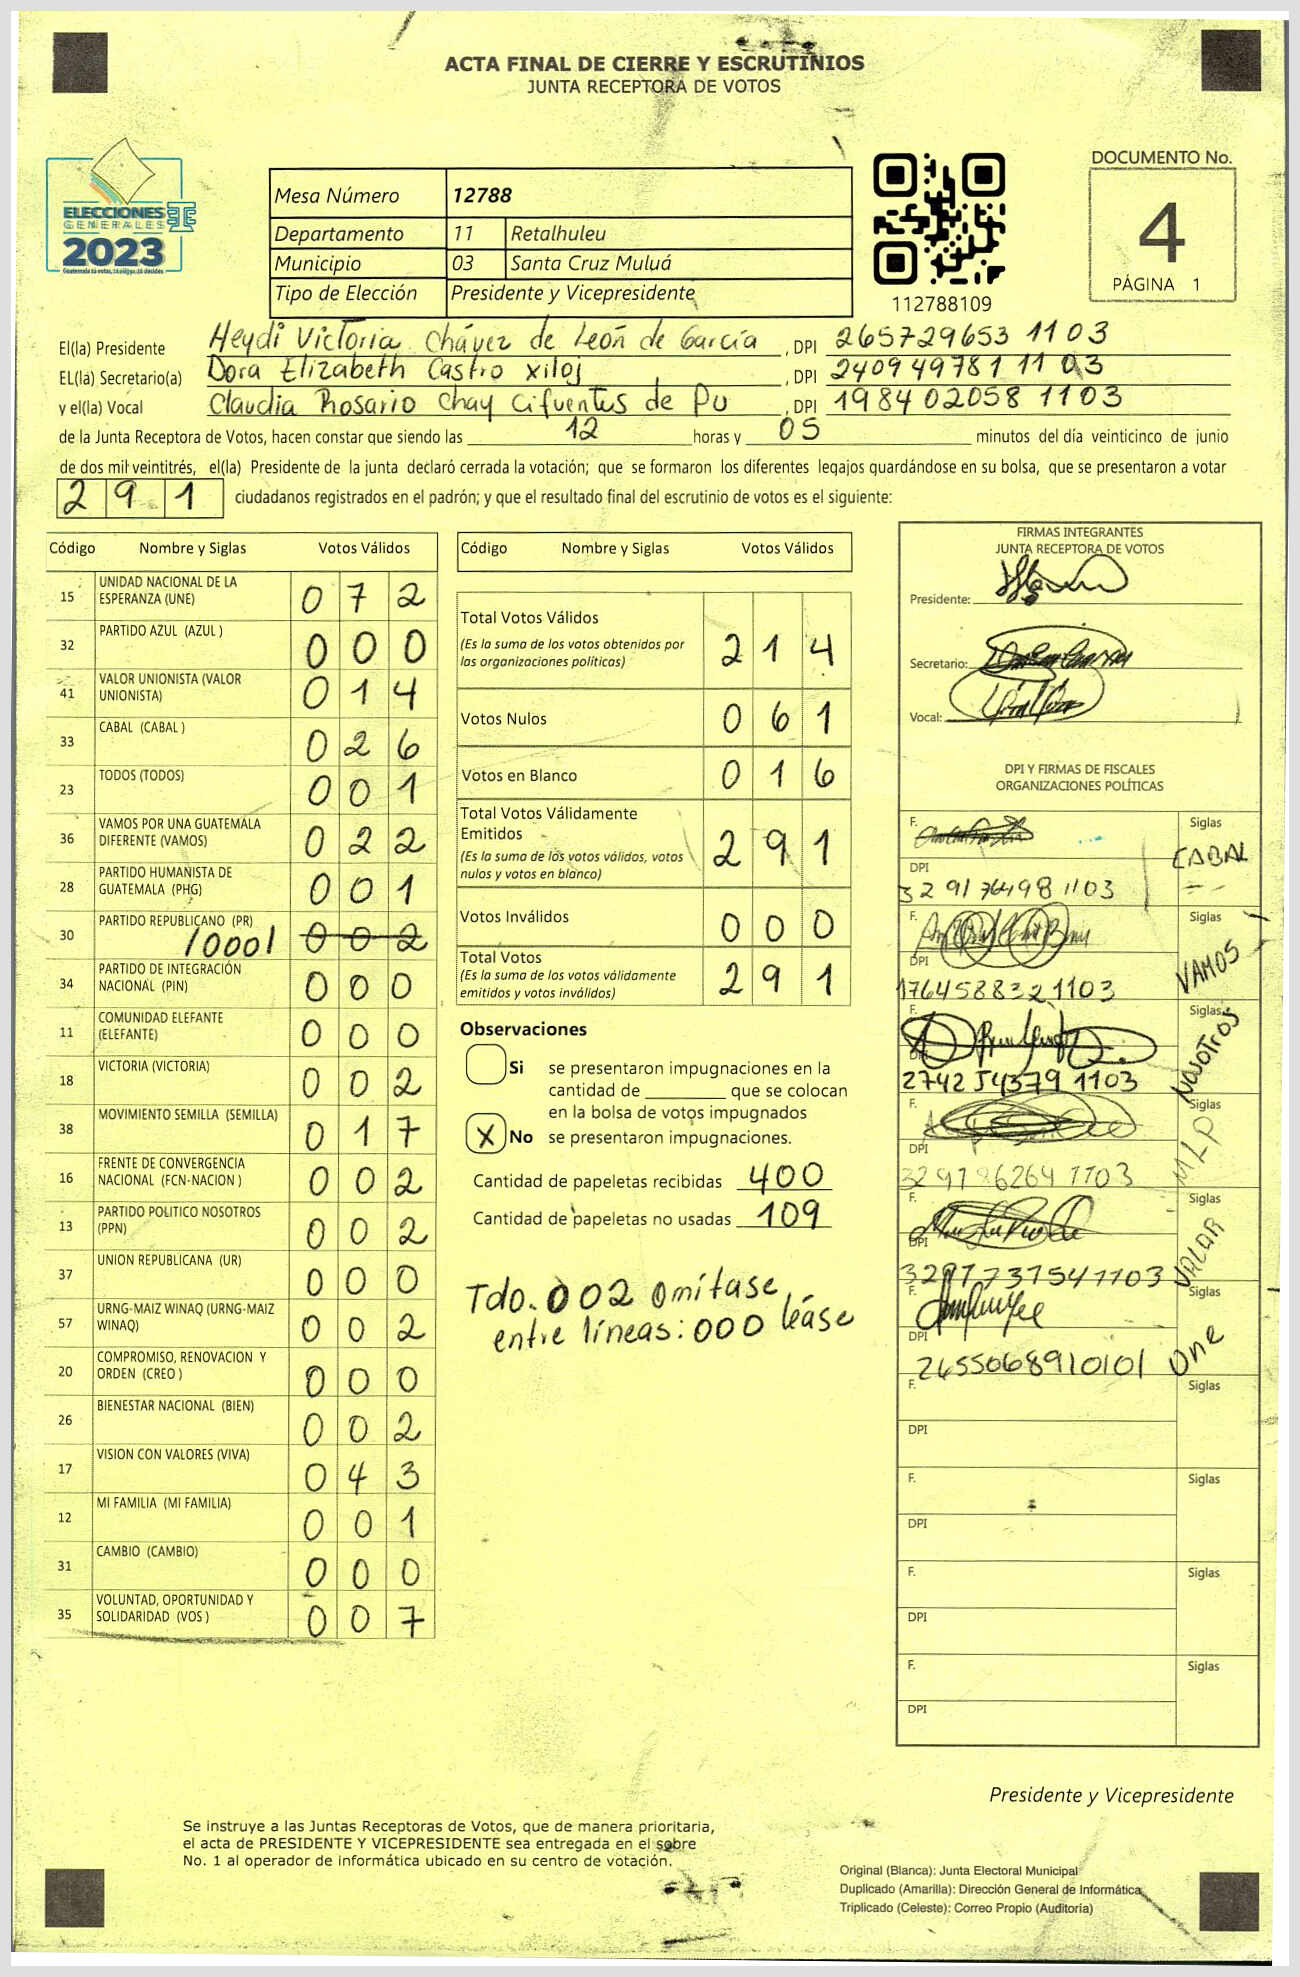 ACTA FINAL DE CIERRE Y ESCRUTINIOS
JUNTA RECEPTORA DE VOTOS
ELECCIONES
GENERALES
2023
Mesa Número 12788
Departamento 11 Retalhuleu
Municipio 03 Santa Cruz Muluá
Tipo de Elección Presidente y Vicepresidente
112788109
DOCUMENTO No.
4
PÁGINA 1
El(la) Presidente Heydi Victoria Chávez de León de García , DPI 265729653 1103
EL(la) Secretario(a) Dora Elizabeth Castro Xiloj , DPI 240949781 1103
y el(la) Vocal Claudia Rosario Chay Cifuentes de Pu , DPI 198402058 1103
de la Junta Receptora de Votos, hacen constar que siendo las 12 horas y 05 minutos del día veinticinco de junio
de dos mil veintitrés, el(la) Presidente de la junta declaró cerrada la votación; que se formaron los diferentes legajos guardándose en su bolsa, que se presentaron a votar
291 ciudadanos registrados en el padrón; y que el resultado final del escrutinio de votos es el siguiente:
Código Nombre y Siglas Votos Válidos
15 UNIDAD NACIONAL DE LA ESPERANZA (UNE) 072
32 PARTIDO AZUL (AZUL ) 000
41 VALOR UNIONISTA (VALOR UNIONISTA) 014
33 CABAL (CABAL ) 026
23 TODOS (TODOS) 001
36 VAMOS POR UNA GUATEMALA DIFERENTE (VAMOS) 022
28 PARTIDO HUMANISTA DE GUATEMALA (PHG) 001
30 PARTIDO REPUBLICANO (PR) /000/ 002
34 PARTIDO DE INTEGRACIÓN NACIONAL (PIN) 000
11 COMUNIDAD ELEFANTE (ELEFANTE) 000
18 VICTORIA (VICTORIA) 002
38 MOVIMIENTO SEMILLA (SEMILLA) 017
16 FRENTE DE CONVERGENCIA NACIONAL (FCN-NACION ) 002
13 PARTIDO POLITICO NOSOTROS (PPN) 002
37 UNION REPUBLICANA (UR) 000
57 URNG-MAIZ WINAQ (URNG-MAIZ WINAQ) 002
20 COMPROMISO, RENOVACION Y ORDEN (CREO ) 000
26 BIENESTAR NACIONAL (BIEN) 002
17 VISION CON VALORES (VIVA) 043
12 MI FAMILIA (MI FAMILIA) 001
31 CAMBIO (CAMBIO) 000
35 VOLUNTAD, OPORTUNIDAD Y SOLIDARIDAD (VOS ) 007
Código Nombre y Siglas Votos Válidos
Total Votos Válidos 214
(Es la suma de los votos obtenidos por
las organizaciones políticas)
Votos Nulos 061
Votos en Blanco 016
Total Votos Válidamente
Emitidos 291
(Es la suma de los votos válidos, votos
nulos y votos en blanco)
Votos Inválidos 000
Total Votos 291
(Es la suma de los votos válidamente
emitidos y votos inválidos)
Observaciones
Si se presentaron impugnaciones en la
cantidad de ________ que se colocan
en la bolsa de votos impugnados
X No se presentaron impugnaciones.
Cantidad de papeletas recibidas 400
Cantidad de papeletas no usadas 109
Tdo. 002 omítase,
entre líneas: 000 léase
FIRMAS INTEGRANTES
JUNTA RECEPTORA DE VOTOS
Presidente:
Secretario:
Vocal:
DPI Y FIRMAS DE FISCALES
ORGANIZACIONES POLÍTICAS
F. Siglas CABAL
DPI 3291764981103
F. Siglas VAMOS
DPI 1764588321103
F. Siglas NOSOTROS
DPI 2742543791103
F. Siglas MLP
DPI 3291862641103
F. Siglas VALOR
DPI 3297737541103
F. Siglas One
DPI 2655068910101
F. Siglas
DPI
F. Siglas
DPI
F. Siglas
DPI
F. Siglas
DPI
Presidente y Vicepresidente
Se instruye a las Juntas Receptoras de Votos, que de manera prioritaria,
el acta de PRESIDENTE Y VICEPRESIDENTE sea entregada en el sobre
No. 1 al operador de informática ubicado en su centro de votación.
Original (Blanca): Junta Electoral Municipal
Duplicado (Amarilla): Dirección General de Informática
Triplicado (Celeste): Correo Propio (Auditoría)